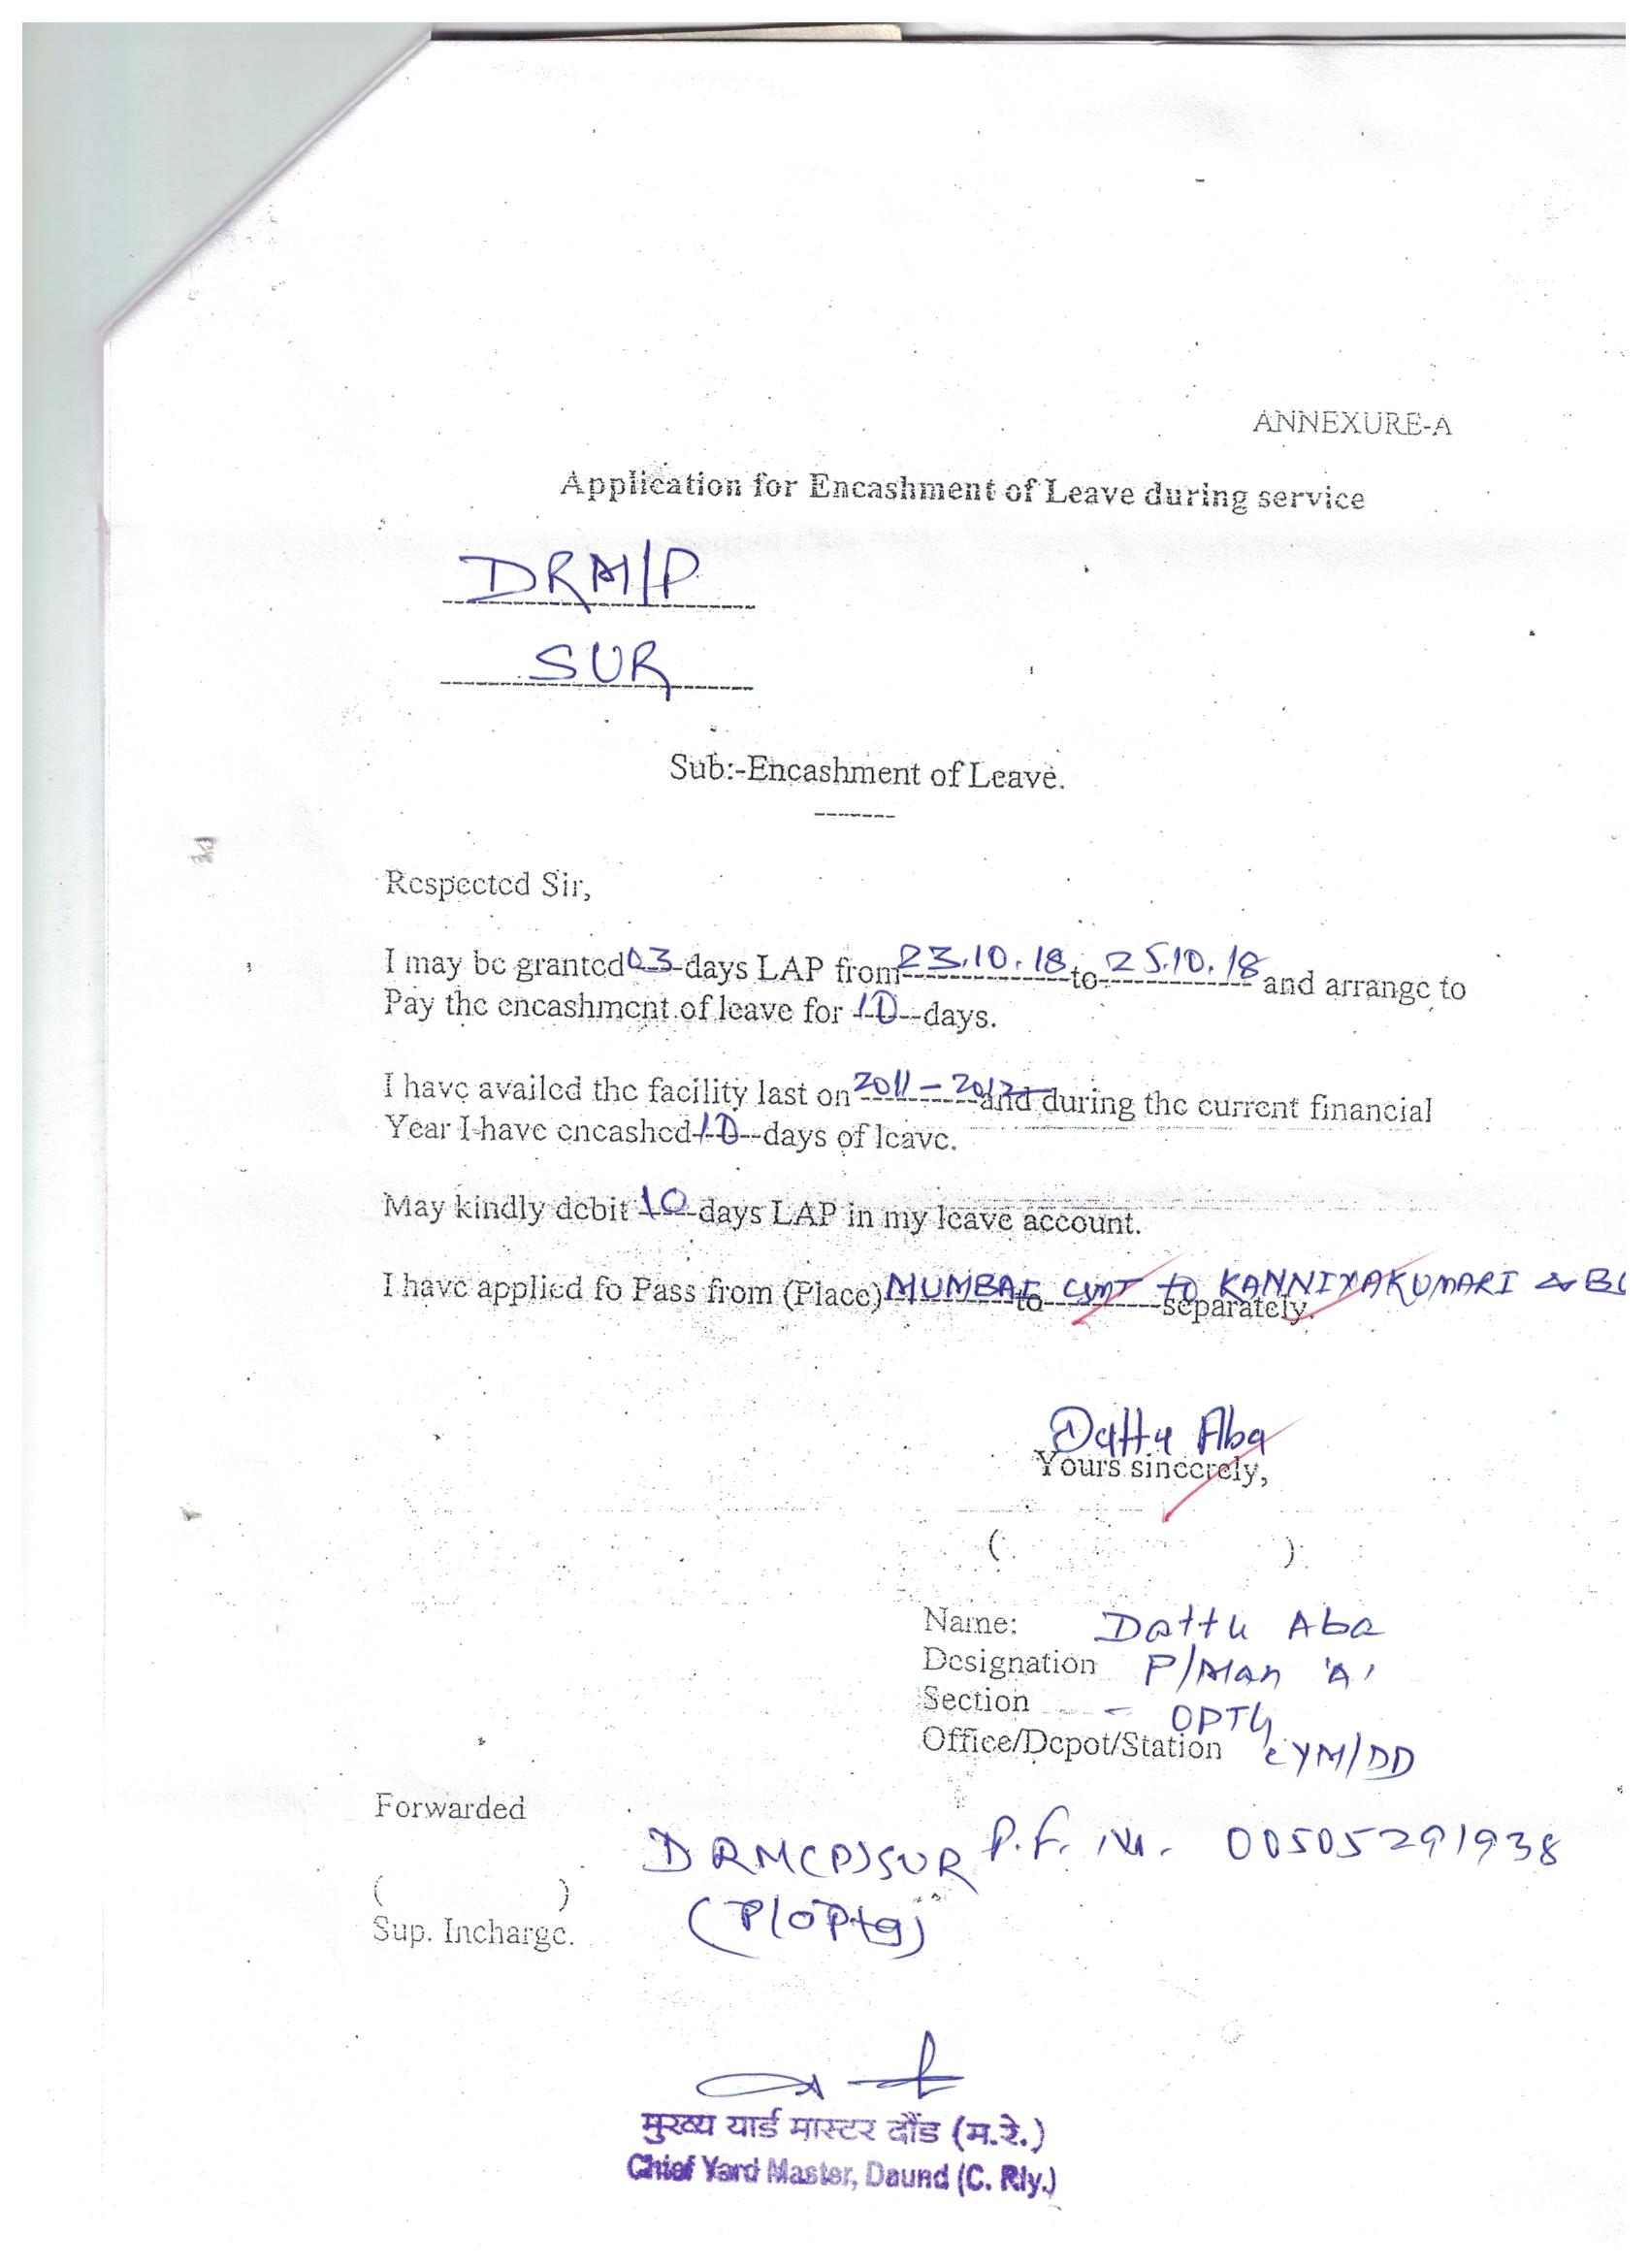 ANNEXURE-A
Application for Encashment of Leave during service
DRM/P
SUR
Sub:-Encashment of Leave.
Respected Sir,
I may be granted 03 days LAP from 23.10.18 to 25.10.18 and arrange to
Pay the encashment of leave for 10 days.
I have availed the facility last on 2011-2012 and during the current financial
Year I have encashed 10 days of leave.
May kindly debit 10 days LAP in my leave account.
I have applied fo Pass from (Place) MUMBAI CSMT to KANNIYAKUMARI & B
to separately.
Dattu Aba
Yours sincerely,
( )
Name: Dattu Aba
Designation P/Man 'A'
Section - OPTG
Office/Depot/Station CYM/DD
Forwarded
DRM(P)SUR P.F. No. 00505291938
( )
(P/OPtg)
Sup. Incharge.
मुख्य यार्ड मास्टर दौंड (म.रे.)
Chief Yard Master, Daund (C. Rly.)